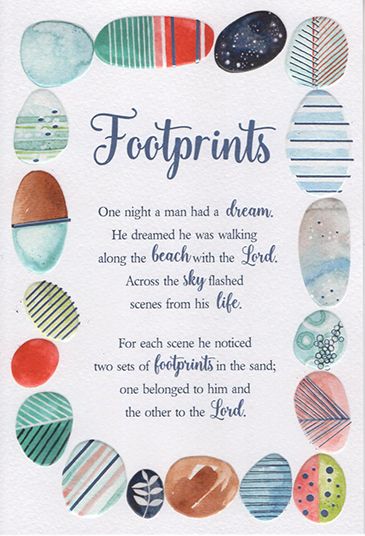 Footprints
One night a man had a dream.
He dreamed he was walking
along the beach with the Lord.
Across the sky flashed
scenes from his life.
For each scene he noticed
two sets of footprints in the sand;
one belonged to him and
the other to the Lord.